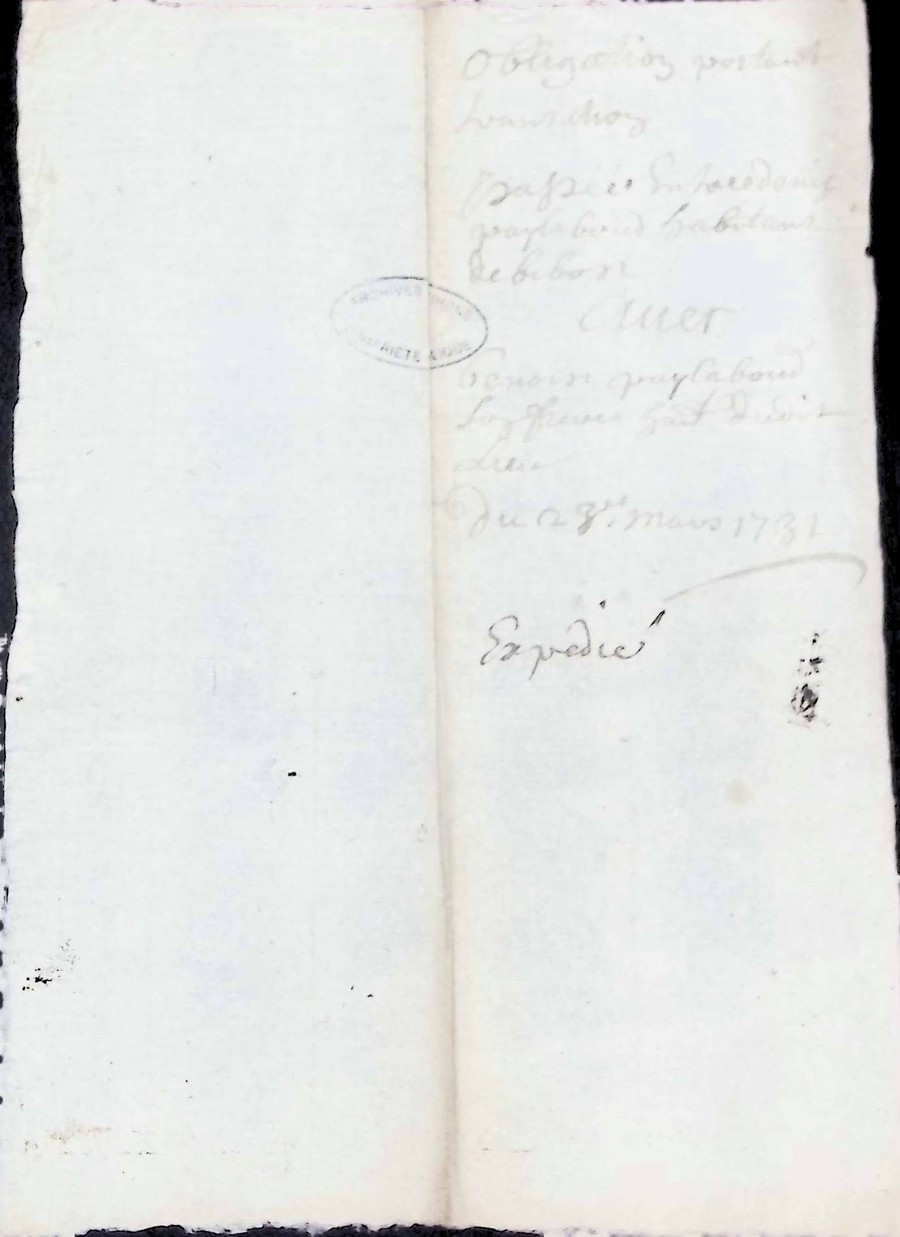 Obligation portant
transaction
passée Entre
paylaboud habitans
de bibost
Avec
benoist paylaboud
son frere habt dudit
Lieu
Du 23e mars 1731
Expedié
ARCHIVES RHONE
PROPRIETE PUBLIQUE